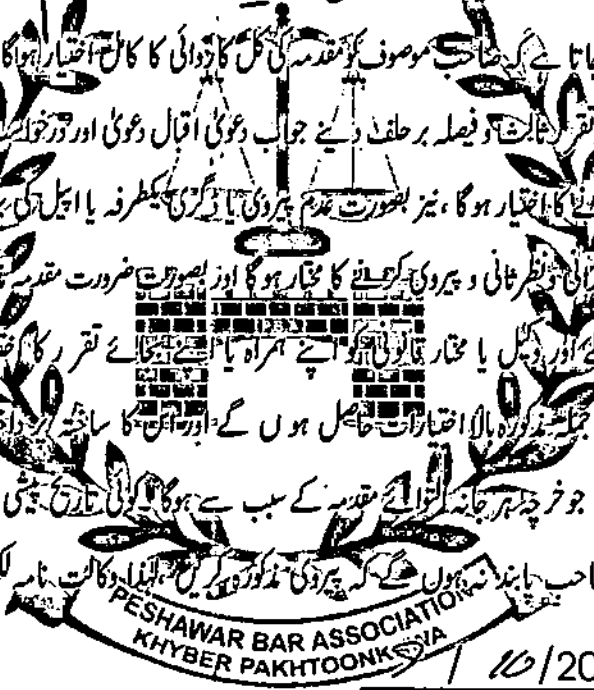 جاتا ہے کہ صاحب موصوف کو مقدمہ کی کل کاروائی کا کامل اختیار ہوگا
تقرر ثالث و فیصلہ بر حلف دینے جواب دعویٰ اقبال دعویٰ اور
کا اختیار ہوگا ، نیز بصورت عدم پیروی یا ڈگری یکطرفہ یا اپیل کی
و نظر ثانی و پیروی کرنے کا مختار ہوگا اور بصورت ضرورت مقدمہ
اور وکیل یا مختار قانونی کو اپنے ہمراہ یا اپنے بجائے تقرر کا
جملہ مذکورہ بالا اختیارات حاصل ہوں گے اور اس کا ساختہ
جو خرچہ ہرجانہ التوائے مقدمہ کے سبب سے ہوگا کوئی تاریخ پیشی
صاحب پابند نہ ہوں گے کہ پیروی مذکورہ کریں لہذا وکالت نامہ
PESHAWAR BAR ASSOCIATION
KHYBER
/ 10/20